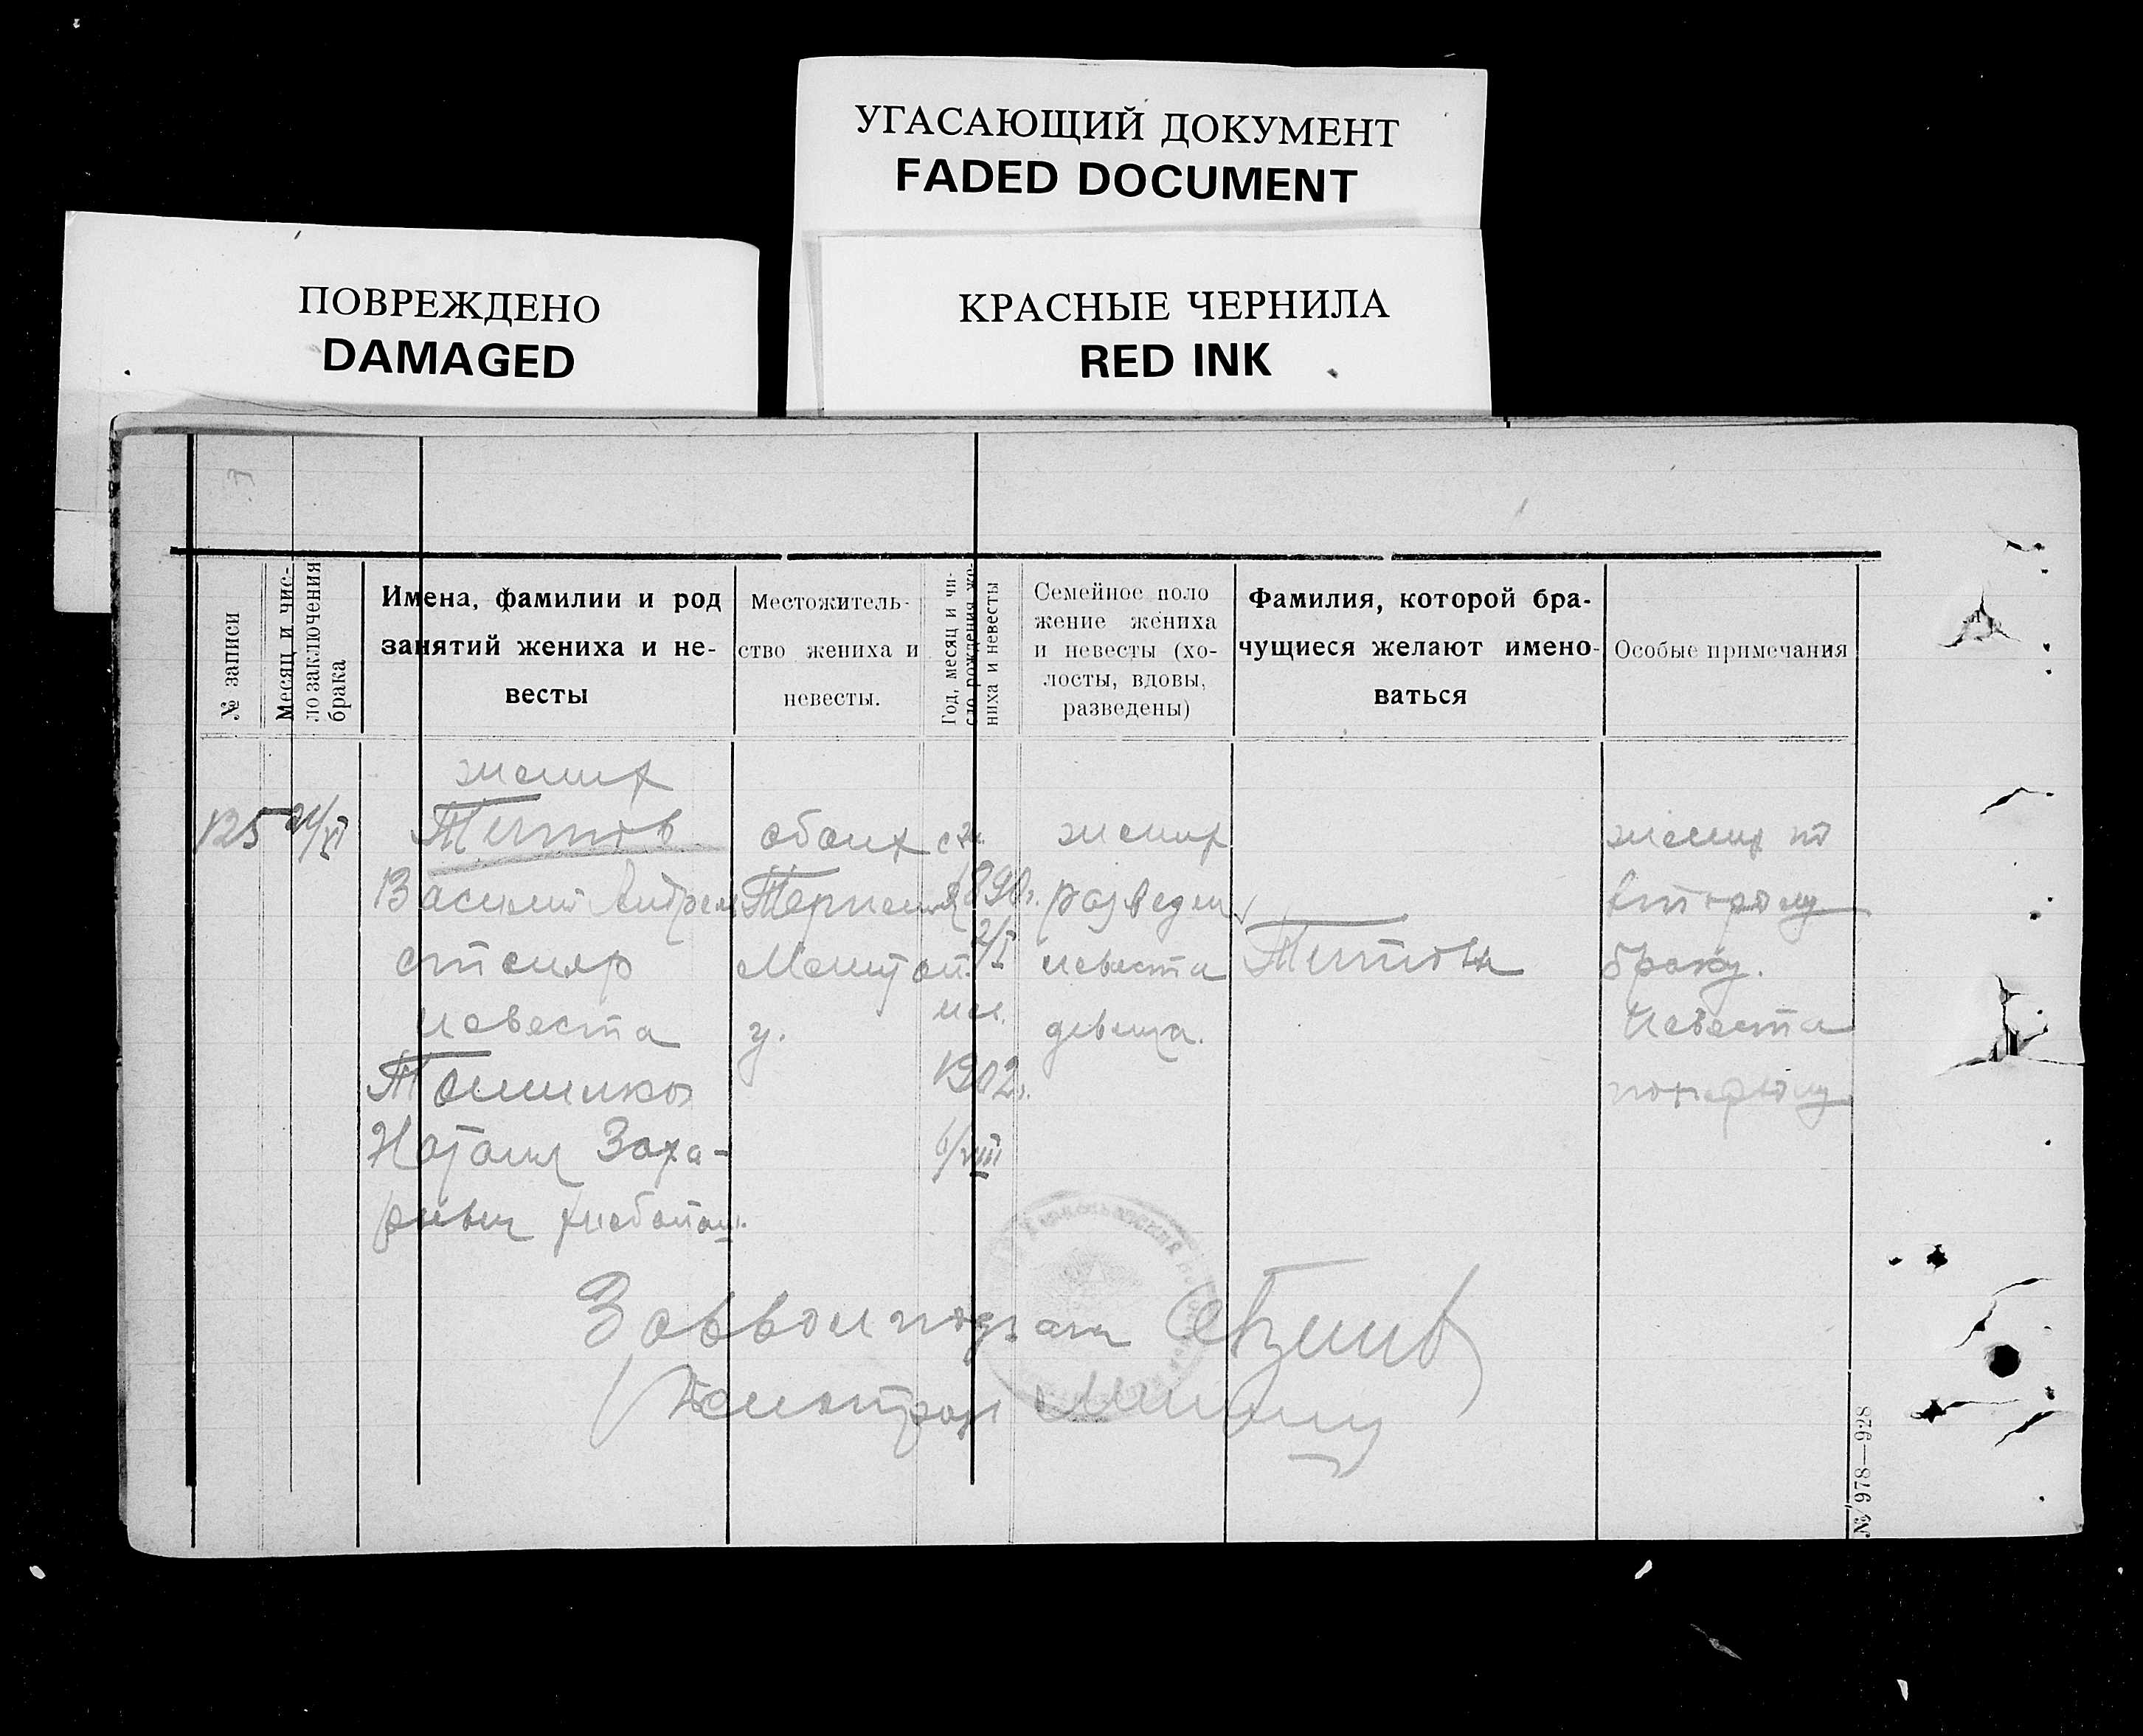 УГАСАЮЩИЙ ДОКУМЕНТ
FADED DOCUMENT
ПОВРЕЖДЕНО
DAMAGED
КРАСНЫЕ ЧЕРНИЛА
RED INK
№ записи
Месяц и чис-
ло заключения
брака
Имена, фамилии и род
занятий жениха и не-
весты
Местожитель-
ство жениха и
невесты.
Год, месяц и чи-
сло рождения же-
ниха и невесты
Семейное поло
жение жениха
и невесты (хо-
лосты, вдовы,
разведены)
Фамилия, которой бра-
чущиеся желают имено-
ваться
Особые примечания
125
21/VI
жених
Титов
Василий Андрей
столяр
невеста
Наталия Заха-
обоих
у.
жен.
1890г.
2/I
нев.
1902г.
6/VIII
жених
разведен
невеста
девица.
Титовы
жених по
второму
браку.
Невеста
по первому
Завволподзагс
№ 978—928